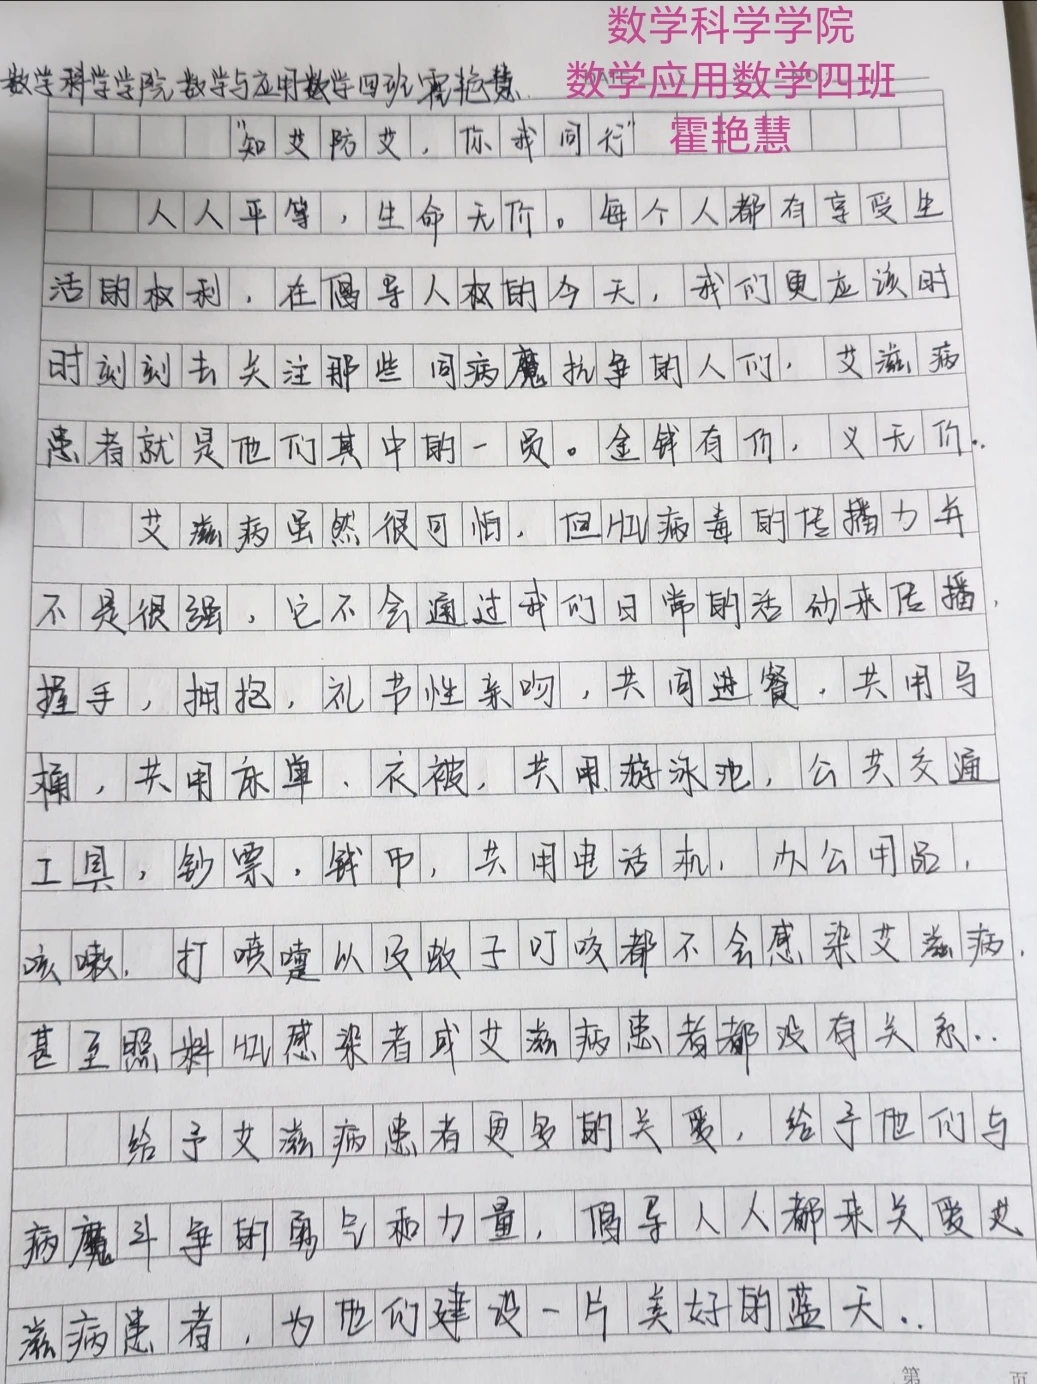 数学科学学院
数学应用数学四班
霍艳慧
数学科学学院数学与应用数学四班霍艳慧
"知艾防艾，你我同行"
人人平等，生命无价。每个人都有享受生
活的权利，在倡导人权的今天，我们更应该时
时刻刻去关注那些同病魔抗争的人们，艾滋病
患者就是他们其中的一员。金钱有价，义无价..
艾滋病虽然很可怕，但HIV病毒的传播力并
不是很强，它不会通过我们日常的活动来传播，
握手，拥抱，礼节性亲吻，共同进餐，共用马
桶，共用床单、衣被，共用游泳池，公共交通
工具，钞票，钱币，共用电话机，办公用品，
咳嗽，打喷嚏以及蚊子叮咬都不会感染艾滋病，
甚至照料HIV感染者或艾滋病患者都没有关系..
给予艾滋病患者更多的关爱，给予他们与
病魔斗争的勇气和力量，倡导人人都来关爱艾
滋病患者，为他们建设一片美好的蓝天..
第 页